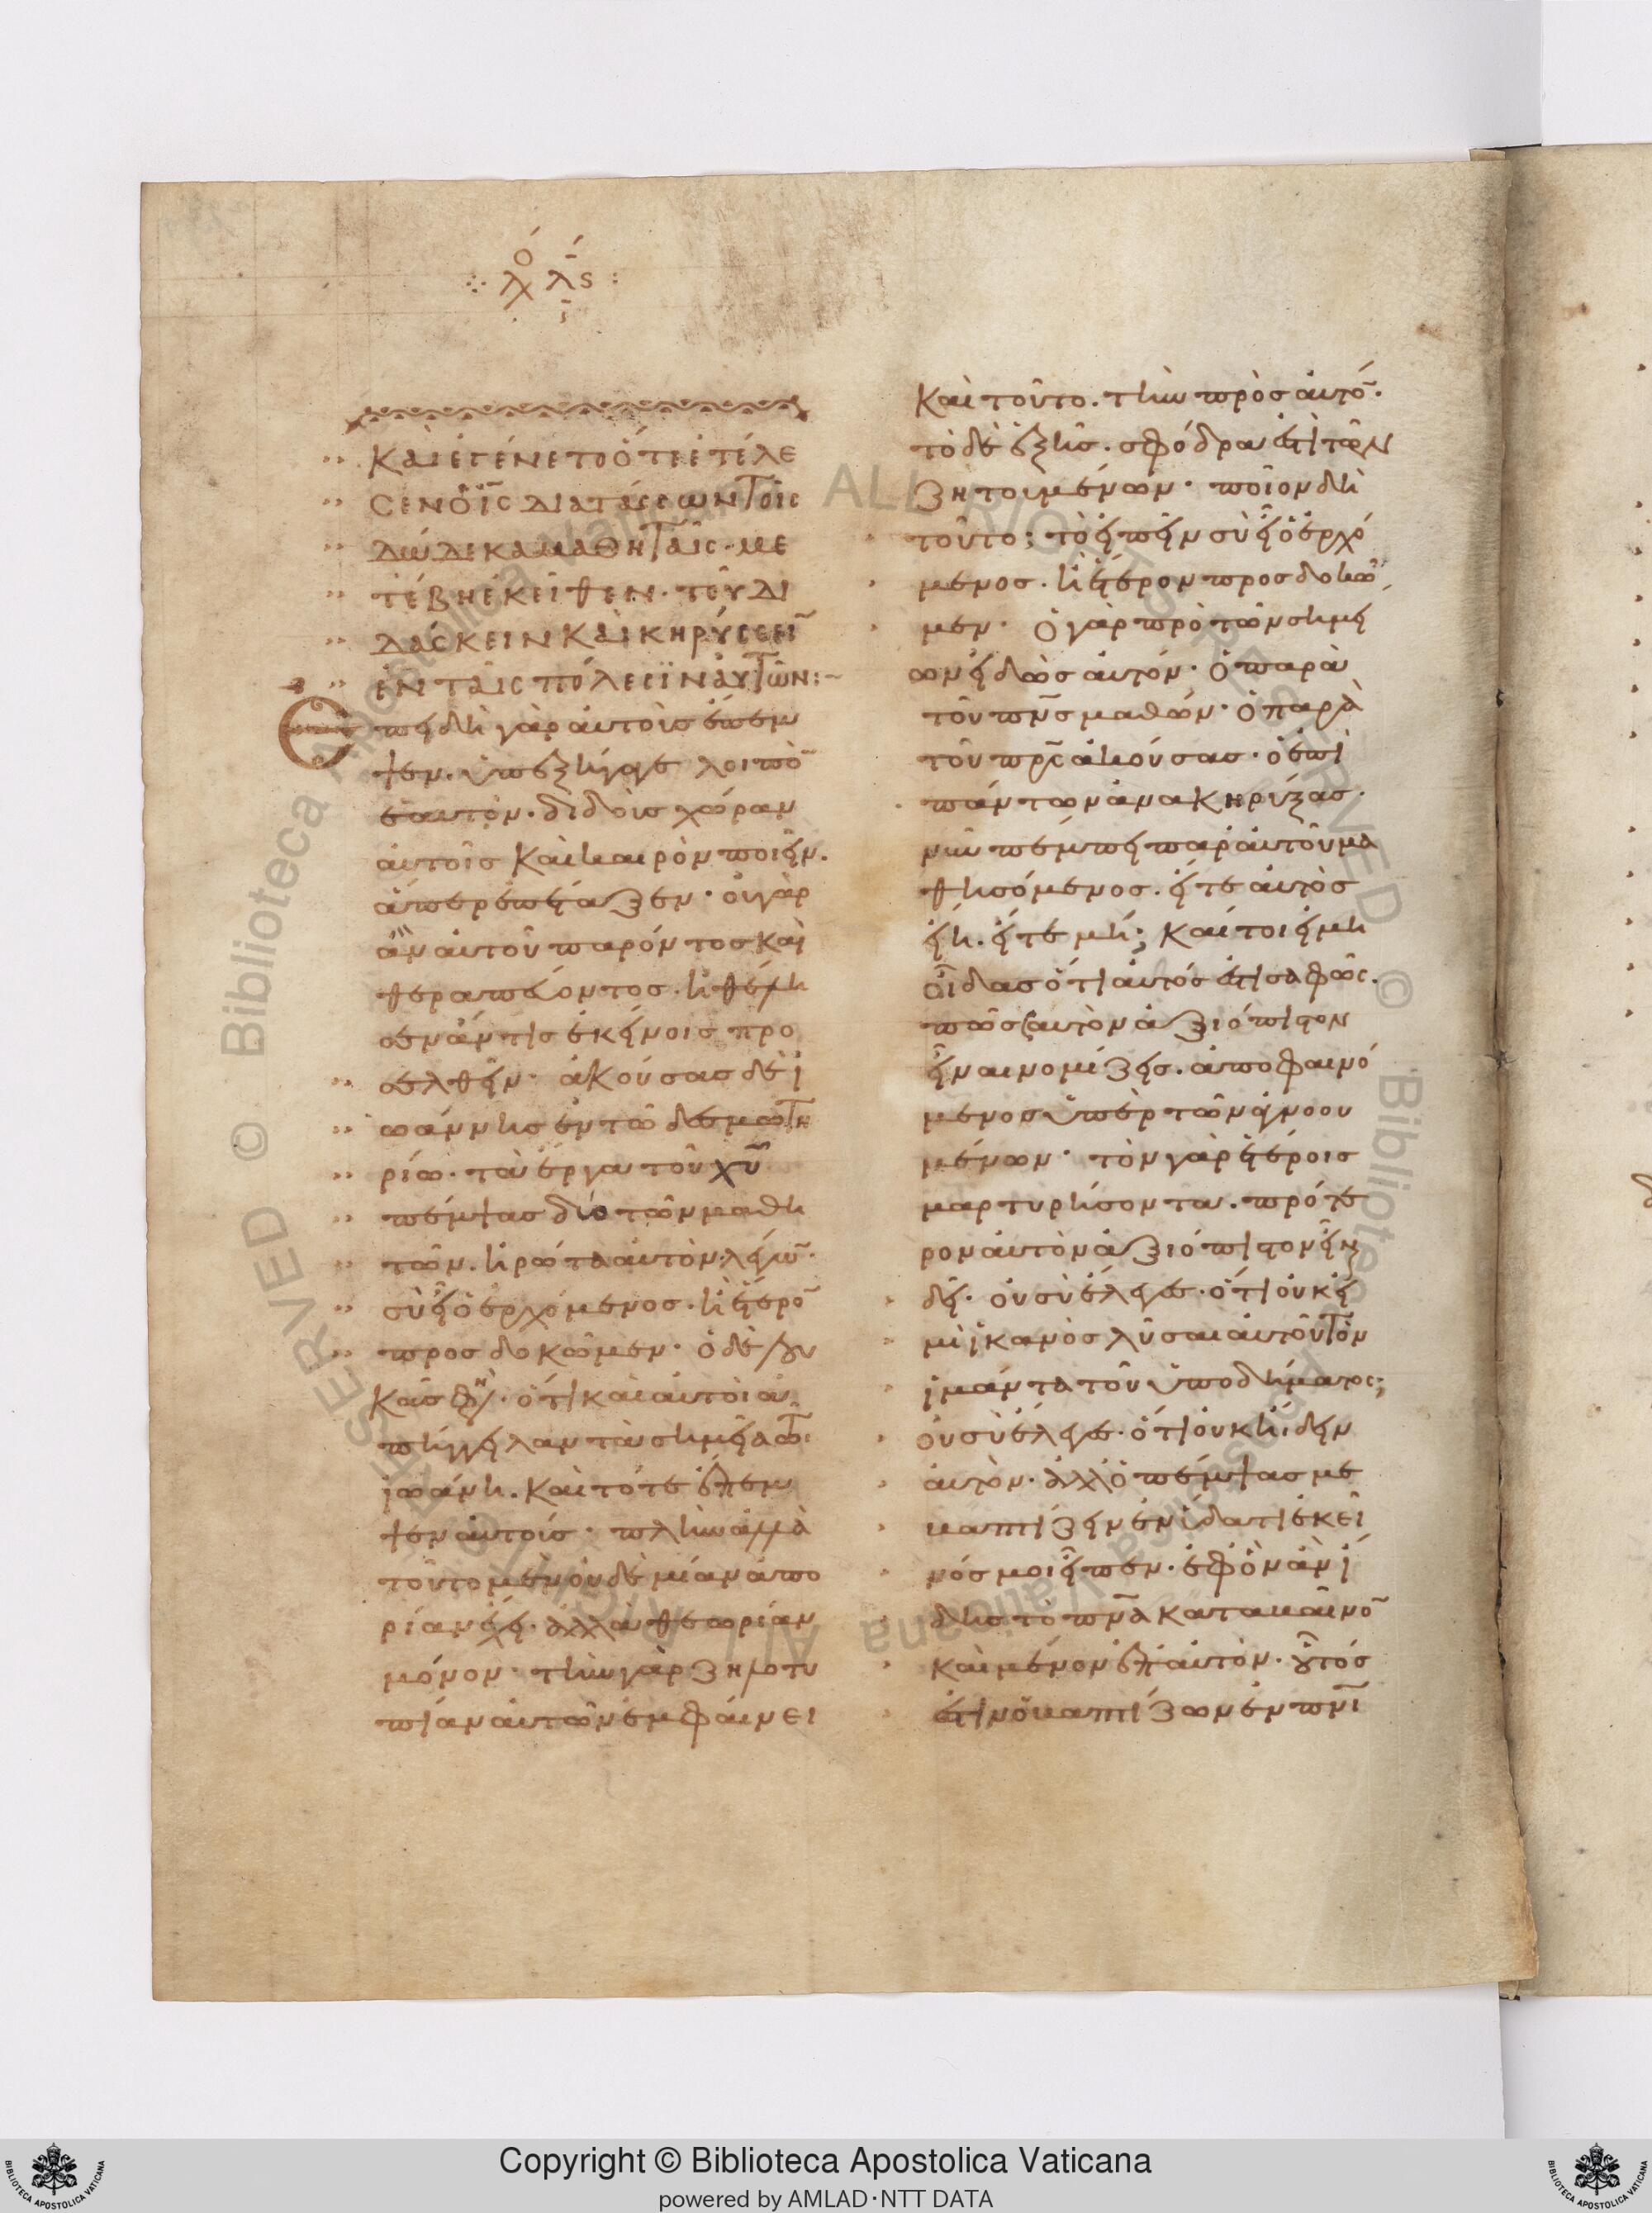 λό λς
Καὶ ἐγένετο ὅτε ἐτέλε
σεν ὁ ις διατάσσων τοῖς
δώδεκα μαθηταῖς· με
τέβη ἐκεῖθεν· τοῦ δι
δάσκειν καὶ κηρύσσειν
ἐν ταῖς πόλεσϊν ἀυτῶν:~
Επειδὴ γὰρ ἀυτοὺς ἔπεμ
ψεν. ὑπεξήγαγε λοιπὸν
ἑαυτὸν· διδοὺς χώραν
ἀυτοῖς καὶ καιρὸν ποιεῖν.
ἅπερ ἐπέταξεν· οὐ γὰρ
ἂν ἀυτοῦ παρόντος καὶ
θεραπεύοντος. ἠθέλη
σεν ἄν τις ἐκείνοις προ
σελθεῖν· ἀκούσας δὲ ἰ
ωάννης ἐν τῶ δεσμωτη
ρίω· τὰ ἔργα τοῦ χυ
πέμψας δύο τῶν μαθη
τῶν. ἠρώτα ἀυτὸν λέγων·
σὺ εἶ ὁ ἐρχόμενος. ἢ ἕτερον
προσδοκῶμεν· ὁ δὲ λου
κᾶς φη· ὅτι καὶ ἀυτοὶ ἀ
πήγγειλαν τὰ σημεῖα τῶ
ἰωάννη. καὶ τότε ἔπεμ
ψεν ἀυτούς· πλὴν ἀλλὰ
τοῦτο μὲν οὐδὲ μίαν ἀπο
ρίαν ἔχει· ἀλλὰ θεωρίαν
μόνον· τὴν γὰρ ζηλοτυ
πίαν ἀυτῶν ἐμφαίνει
καὶ τοῦτο. τὴν πρὸς ἀυτόν·
τὸ δὲ ἑξῆς. σφόδρα ἐστὶ τῶν
ζητουμένων· ποῖον δὴ
τοῦτο; τὸ εἰπεῖν σὺ εἶ ὁ ἐρχό
μενος. ἢ ἕτερον προσδοκῶ
μεν· ὁ γὰρ πρὸ τῶν σημεί
ων εἰδὼς ἀυτόν· ὁ παρὰ
τοῦ πνς μαθών· ὁ παρὰ
τοῦ πρς ἀκούσας· ὁ ἐπὶ
πάντων ἀνακηρύξας·
νῦν πέμπει παρ ἀυτοῦ μα
θησόμενος. εἴτε ἀυτὸς
εἴη. εἴτε μή; καίτοι εἰ μὴ
οἶδας ὅτι ἀυτός ἐστι σαφῶς.
πῶς σαυτὸν ἀξιόπιστον
εἶναι νομίζεις. ἀποφαινό
μενος ὑπὲρ τῶν ἀγνοου
μένων· τὸν γὰρ ἑτέροις
μαρτυρήσοντα. πρότε
ρον ἀυτὸν ἀξιόπιστον εἶναι
δεῖ· οὐ σὺ ἔλεγες· ὅτι οὐκ εἰ
μὶ ἱκανὸς λῦσαι ἀυτοῦ τὸν
ἱμάντα τοῦ ὑποδήματος;
οὐ σὺ ἔλεγες· ὅτι οὐκ ἤιδειν
ἀυτὸν· ἀλλ ὁ πέμψας με
βαπτίζειν ἐν ὕδατι ἐκεῖ
νός μοι εἶπεν. ἐφ ὃν ἂν ἴ
δης τὸ πνα καταβαῖνον
καὶ μένον ἐπ ἀυτὸν· οὗτός
ἐστιν ὁ βαπτίζων ἐν πνι
Copyright © Biblioteca Apostolica Vaticana
powered by AMLAD·NTT DATA